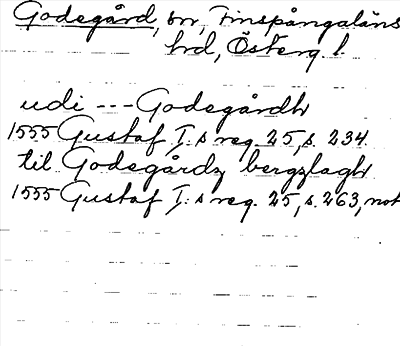 Godegård, sn, Finspångaläns
hrd, Österg. l.
udi --- Godegårdh
1555 Gustaf I:s reg. 25, s. 234.
til Godegårdz bergzlagh
1555 Gustaf I:s reg. 25, s. 263, not